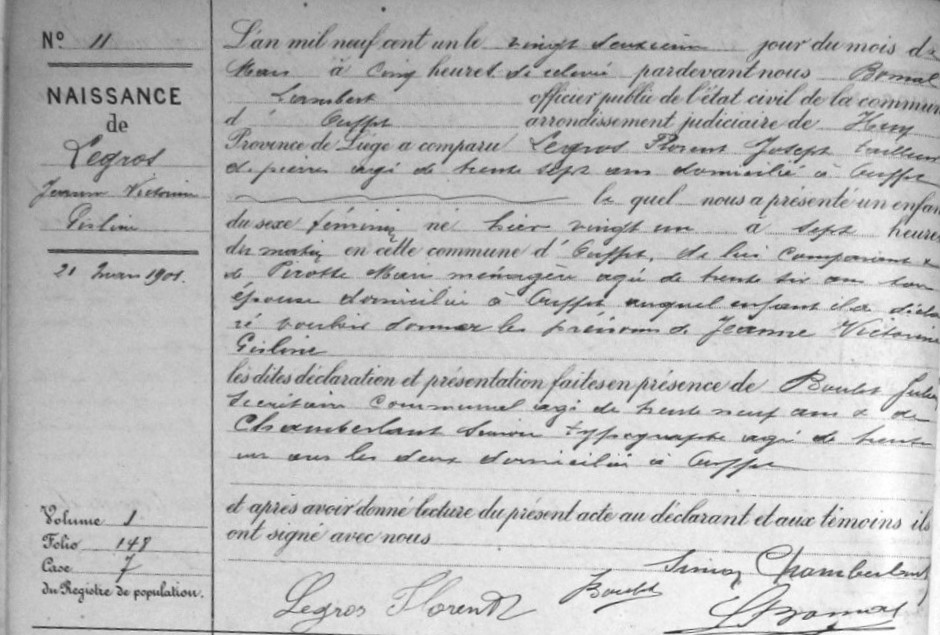 N° 11
NAISSANCE
de
Legros
Jeanne Victorine
Gisline
21 mars 1901.
Volume 1
Folio 148
Case 7
du Registre de population.
L'an mil neuf cent un le vingt deuxième jour du mois de
Mars à cinq heures de relevée pardevant nous Bomal
Lambert officier public de l'état civil de la commun
d' Ouffet arrondissement judiciaire de Huy
Province de Liége a comparu Legros Florent Joseph tailleur
de pierres agé de trente sept ans domicilié à Ouffet
le quel nous a présenté un enfan
du sexe féminin né hier vingt un à sept heures
du matin en cette commune d'Ouffet, de lui comparant &
de Pirotte Marie ménagère agée de trente six ans son
épouse domiciliée à Ouffet auquel enfant il a décla
ré vouloir donner les prénoms de Jeanne Victorine
Gisline
les dites déclaration et présentation faites en présence de Boulet Jules
Secrétaire communal agé de trente neuf ans & de
Chamberlant Simon typographe agé de trente
un ans les deux domiciliés à Ouffet
et après avoir donné lecture du présent acte au déclarant et aux témoins ils
ont signé avec nous
Simon Chamberlant
Legros Florent Boulet
L Bomal